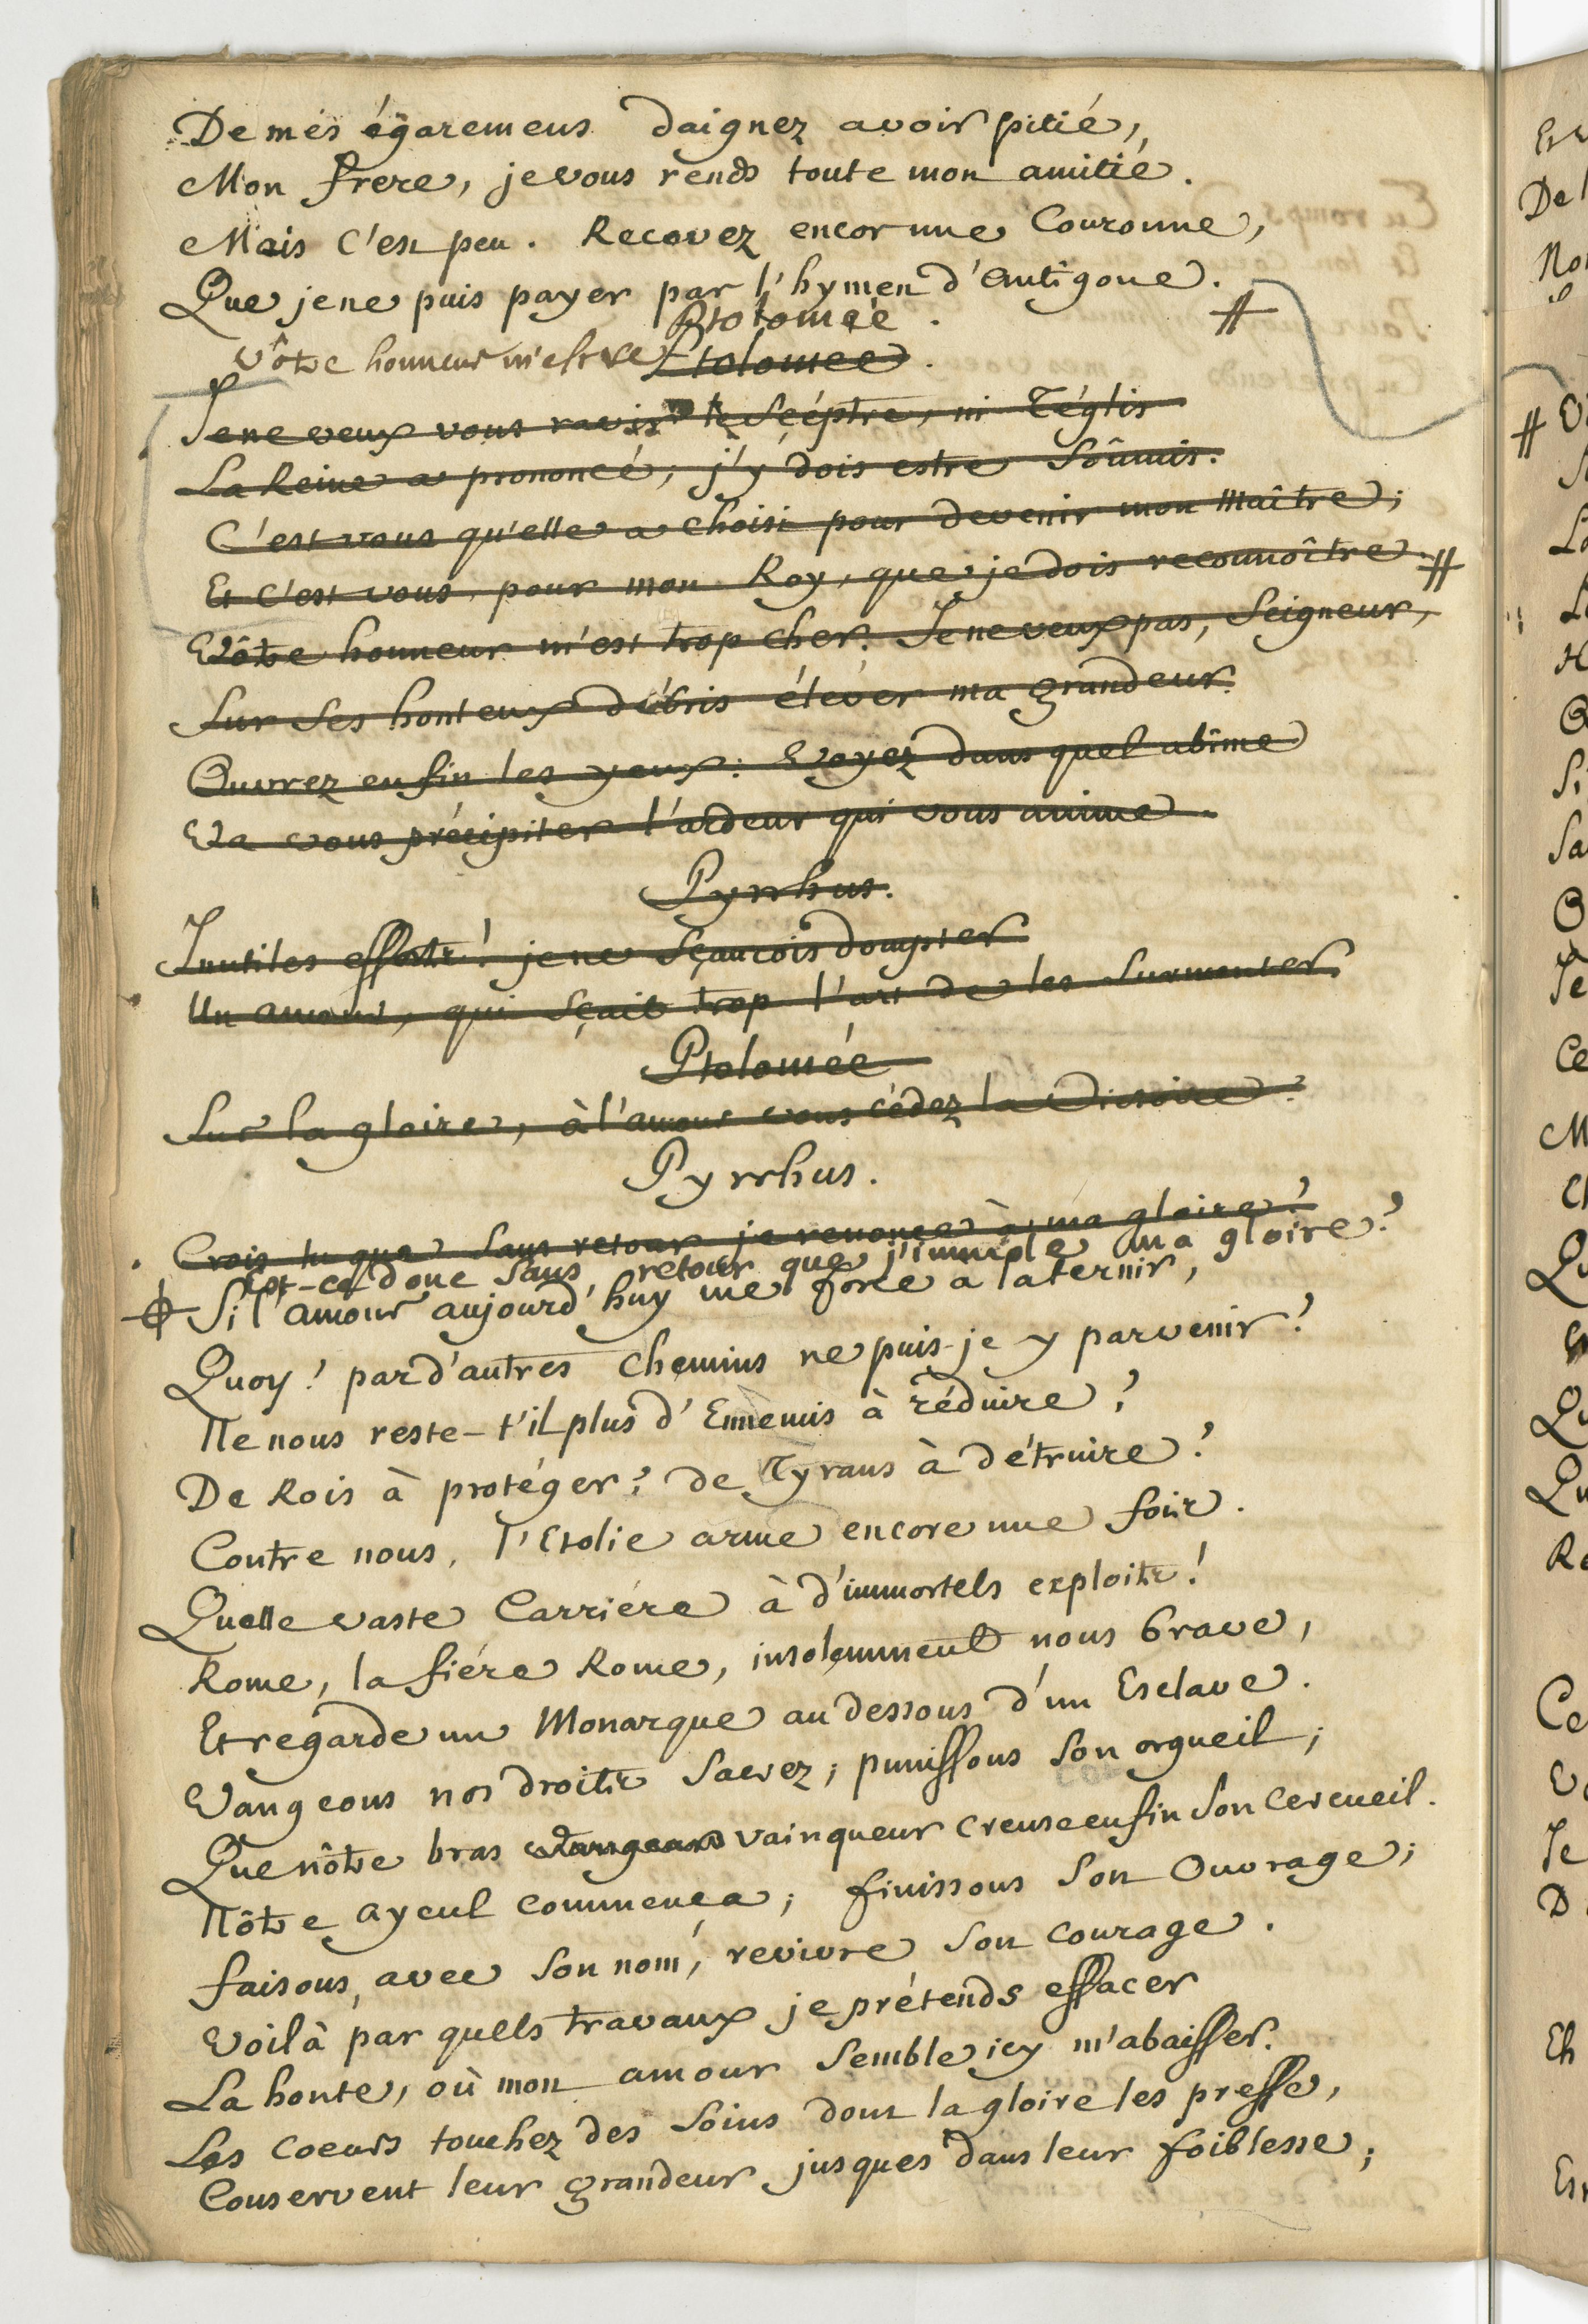 De mes égaremens daignez avoir pitié,
Mon frere, je vous rends toute mon amitié.
Mais c'est peu. Recevez encor une Couronne,
Que je ne puis payer par l'hymen d'Antigone.
Ptolomée.
#
Vôtre honneur m'est
Ptolomée.
Je ne veux vous ravir le Sceptre, ni Téglis
La Reine a prononcé; j'y dois estre soûmis.
C'est vous qu'elle a choisi pour devenir mon Maître;
Et c'est vous, pour mon Roy, que je dois reconnoître. #
Vôtre honneur m'est trop cher. Je ne veux pas, Seigneur,
Sur ses honteux débris élever ma grandeur.
Ouvrez enfin les yeux: Voyez dans quel abîme
Va vous précipiter l'ardeur qui vous anime.
Pyrrhus.
Inutiles efforts! je ne sçaurois dompter
Un amour, qui sçait trop l'art de les surmonter.
Ptolomée
Sur la gloire, à l'amour vous cédez la victoire?
Pyrrhus.
Crois tu que sans retour je renonce à ma gloire?
Est-ce donc sans retour que j'immole ma gloire?
Si l'amour aujourd'huy me force à la ternir,
Quoy! par d'autres chemins ne puis-je y parvenir?
Ne nous reste-t'il plus d'Ennemis à réduire?
De Rois à protéger? de Tyrans à détruire?
Contre nous, l'Etolie arme encore une fois.
Quelle vaste Carriére à d'immortels exploits!
Rome, la fiére Rome, insolemment nous brave,
Et regarde un Monarque au dessous d'un Esclave.
Vangeons nos droits sacrez; punissons son orgueil;
Que nôtre bras vangeurs vainqueur creuse enfin son cercueil.
Nôtre ayeul commença; finissons son Ouvrage;
faisons, avec son nom, revivre son courage.
Voilà par quels travaux je prétends effacer
La honte, où mon amour semble icy m'abaisser.
Les coeurs touchez des soins dont la gloire les presse,
Conservent leur grandeur jusques dans leur foiblesse;